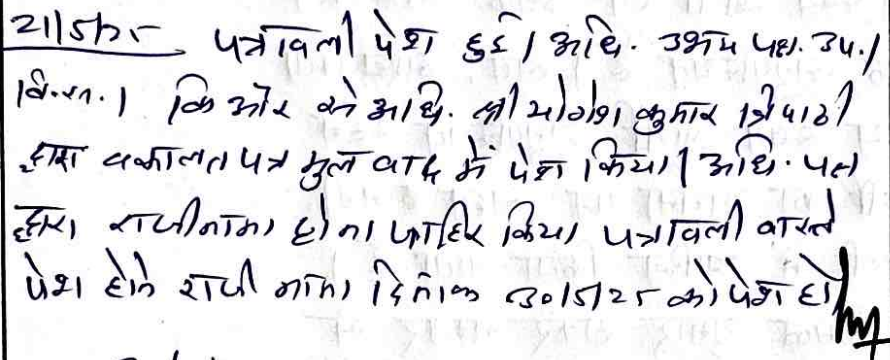 21/5/25 पत्रावली पेश हुई। अधि. उभय पक्ष. उप.।
वि.रा.। कि ओर से अधि. श्री योगेश कुमार त्रिपाठी
द्वारा वकालत पत्र मुल वाद में पेश किया। अधि. पक्ष
द्वारा राजीनामा होना जाहिर किया पत्रावली वास्ते
पेश होने राजी नामा दिनांक 30/5/25 को पेश हो